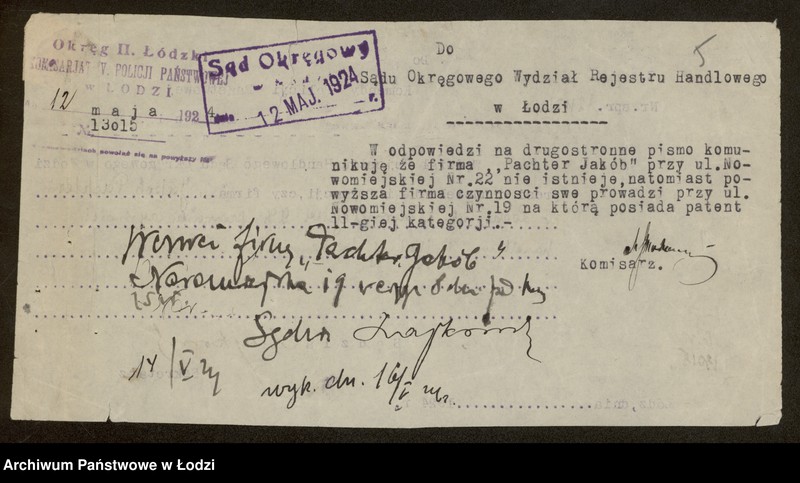 Okręg II. Łódzki
KOMISARJAT V. POLICJI PAŃSTWOWEJ
w ŁODZI
12 maja 1924
№ 13015
Sąd Okręgowy
dnia 12 MAJ. 1924 r.
5
Do
Sądu Okręgowego Wydział Rejestru Handlowego
w Łodzi
W odpowiedzi na drugostronne pismo komu-
nikuję że firma ,,Pachter Jakób" przy ul.No-
womiejskiej Nr.22 nie istnieje,natomiast po-
wyższa firma czynnosci swe prowadzi przy ul.
Nowomiejskiej Nr.19 na którą posiada patent
II-giej kategorji.-
Komisarz.
firmy „Pachter Jakób"
19
Sędzia
14/V 24
wyk. dn. 16/V 24r
Archiwum Państwowe w Łodzi